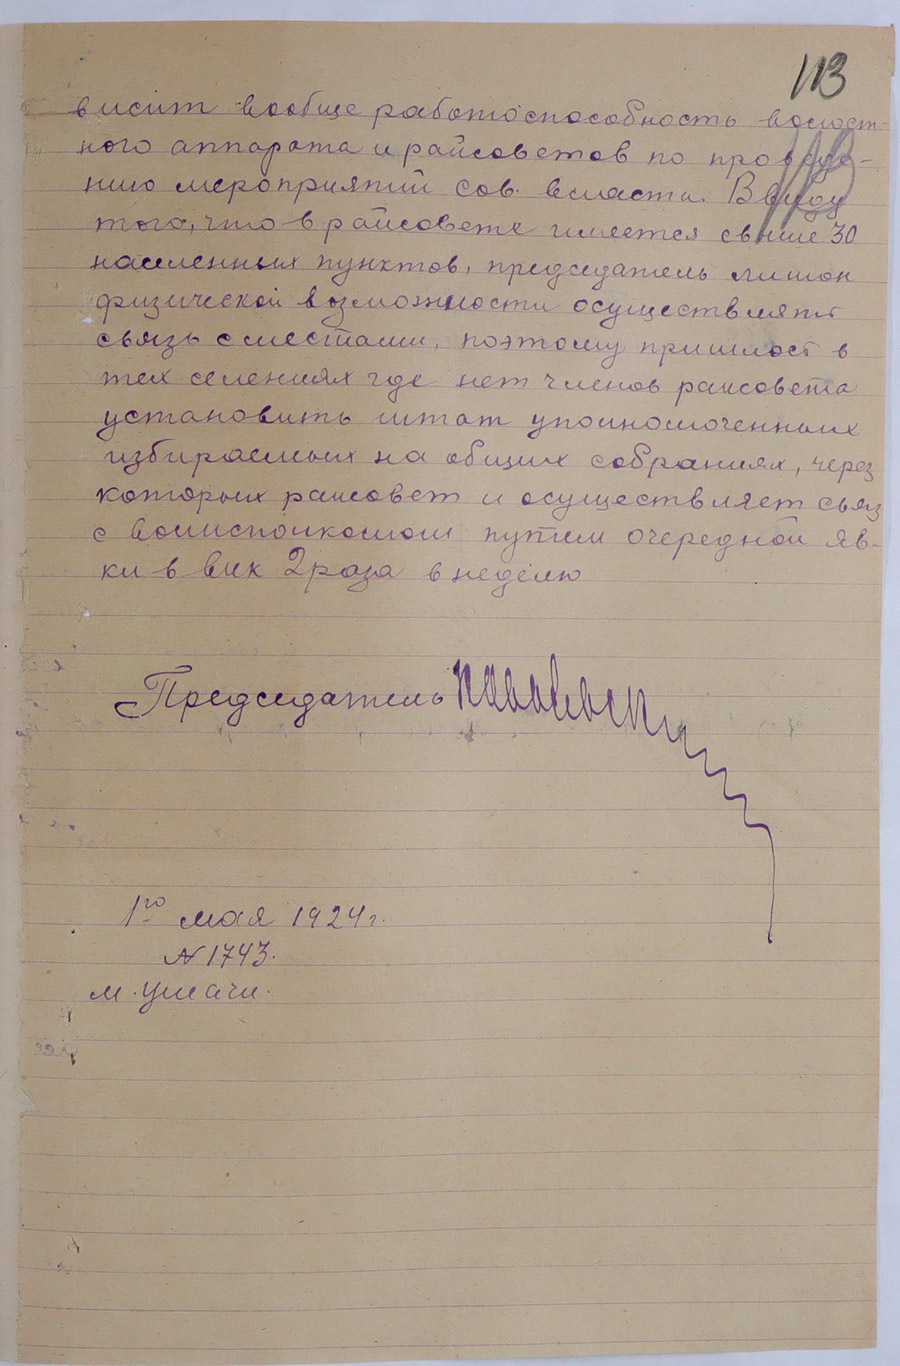 113
висит вообще работоспособность волост-
ного аппарата и райсоветов по проведе-
нию мероприятий Сов. власти. Ввиду
того, что в райсовете имеется свыше 30
населенных пунктов, председатель лишон
физической возможности осуществлять
связь с местами, поэтому пришлось в
тех селениях где нет членов райсовета
установить штат уполномоченных
избираемых на общих собраниях, через
которых райсовет и осуществляет связ
с волисполкомом путем очередной яв-
ки в вик 2 раза в неделю
Председатель
1го мая 1924 г.
№ 1743.
м. Ушачи.